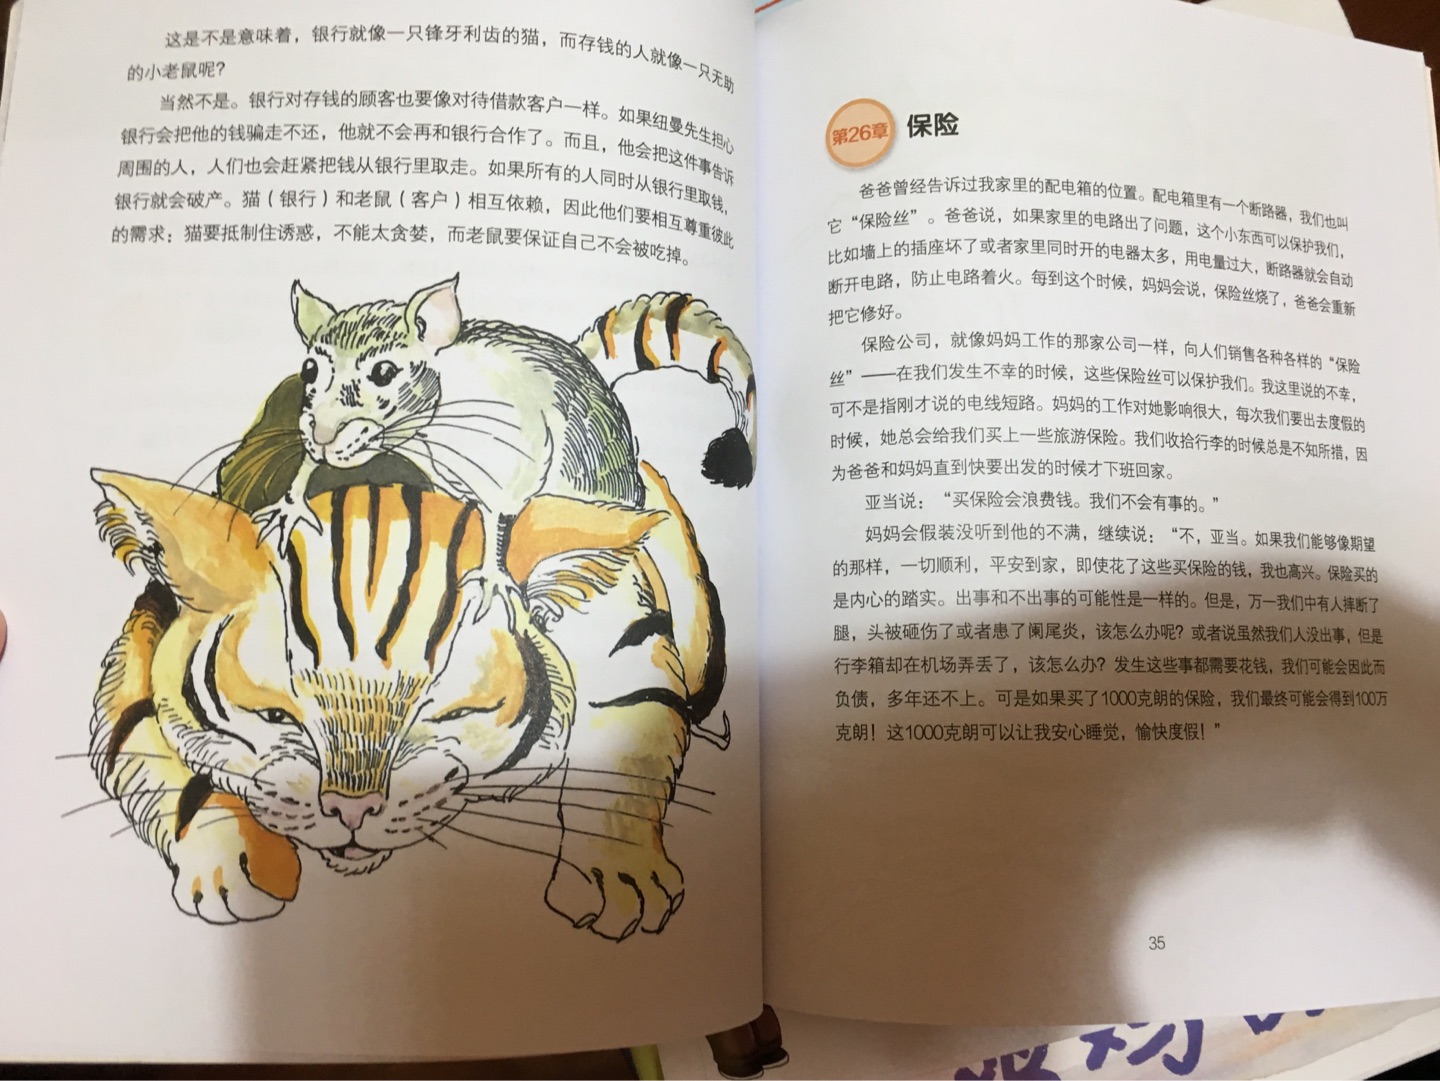 这是不是意味着，银行就像一只锋牙利齿的猫，而存钱的人就像一只无助
的小老鼠呢？
当然不是。银行对存钱的顾客也要像对待借款客户一样。如果纽曼先生担心
银行会把他的钱骗走不还，他就不会再和银行合作了。而且，他会把这件事告诉
周围的人，人们也会赶紧把钱从银行里取走。如果所有的人同时从银行里取钱，
银行就会破产。猫（银行）和老鼠（客户）相互依赖，因此他们要相互尊重彼此
的需求：猫要抵制住诱惑，不能太贪婪，而老鼠要保证自己不会被吃掉。
第26章 保险
爸爸曾经告诉过我家里的配电箱的位置。配电箱里有一个断路器，我们也叫
它“保险丝”。爸爸说，如果家里的电路出了问题，这个小东西可以保护我们，
比如墙上的插座坏了或者家里同时开的电器太多，用电量过大，断路器就会自动
断开电路，防止电路着火。每到这个时候，妈妈会说，保险丝烧了，爸爸会重新
把它修好。
保险公司，就像妈妈工作的那家公司一样，向人们销售各种各样的“保险
丝”——在我们发生不幸的时候，这些保险丝可以保护我们。我这里说的不幸，
可不是指刚才说的电线短路。妈妈的工作对她影响很大，每次我们要出去度假的
时候，她总会给我们买上一些旅游保险。我们收拾行李的时候总是不知所措，因
为爸爸和妈妈直到快要出发的时候才下班回家。
亚当说：“买保险会浪费钱。我们不会有事的。”
妈妈会假装没听到他的不满，继续说：“不，亚当。如果我们能够像期望
的那样，一切顺利，平安到家，即使花了这些买保险的钱，我也高兴。保险买的
是内心的踏实。出事和不出事的可能性是一样的。但是，万一我们中有人摔断了
腿，头被砸伤了或者患了阑尾炎，该怎么办呢？或者说虽然我们人没出事，但是
行李箱却在机场弄丢了，该怎么办？发生这些事都需要花钱，我们可能会因此而
负债，多年还不上。可是如果买了1000克朗的保险，我们最终可能会得到100万
克朗！这1000克朗可以让我安心睡觉，愉快度假！”
35